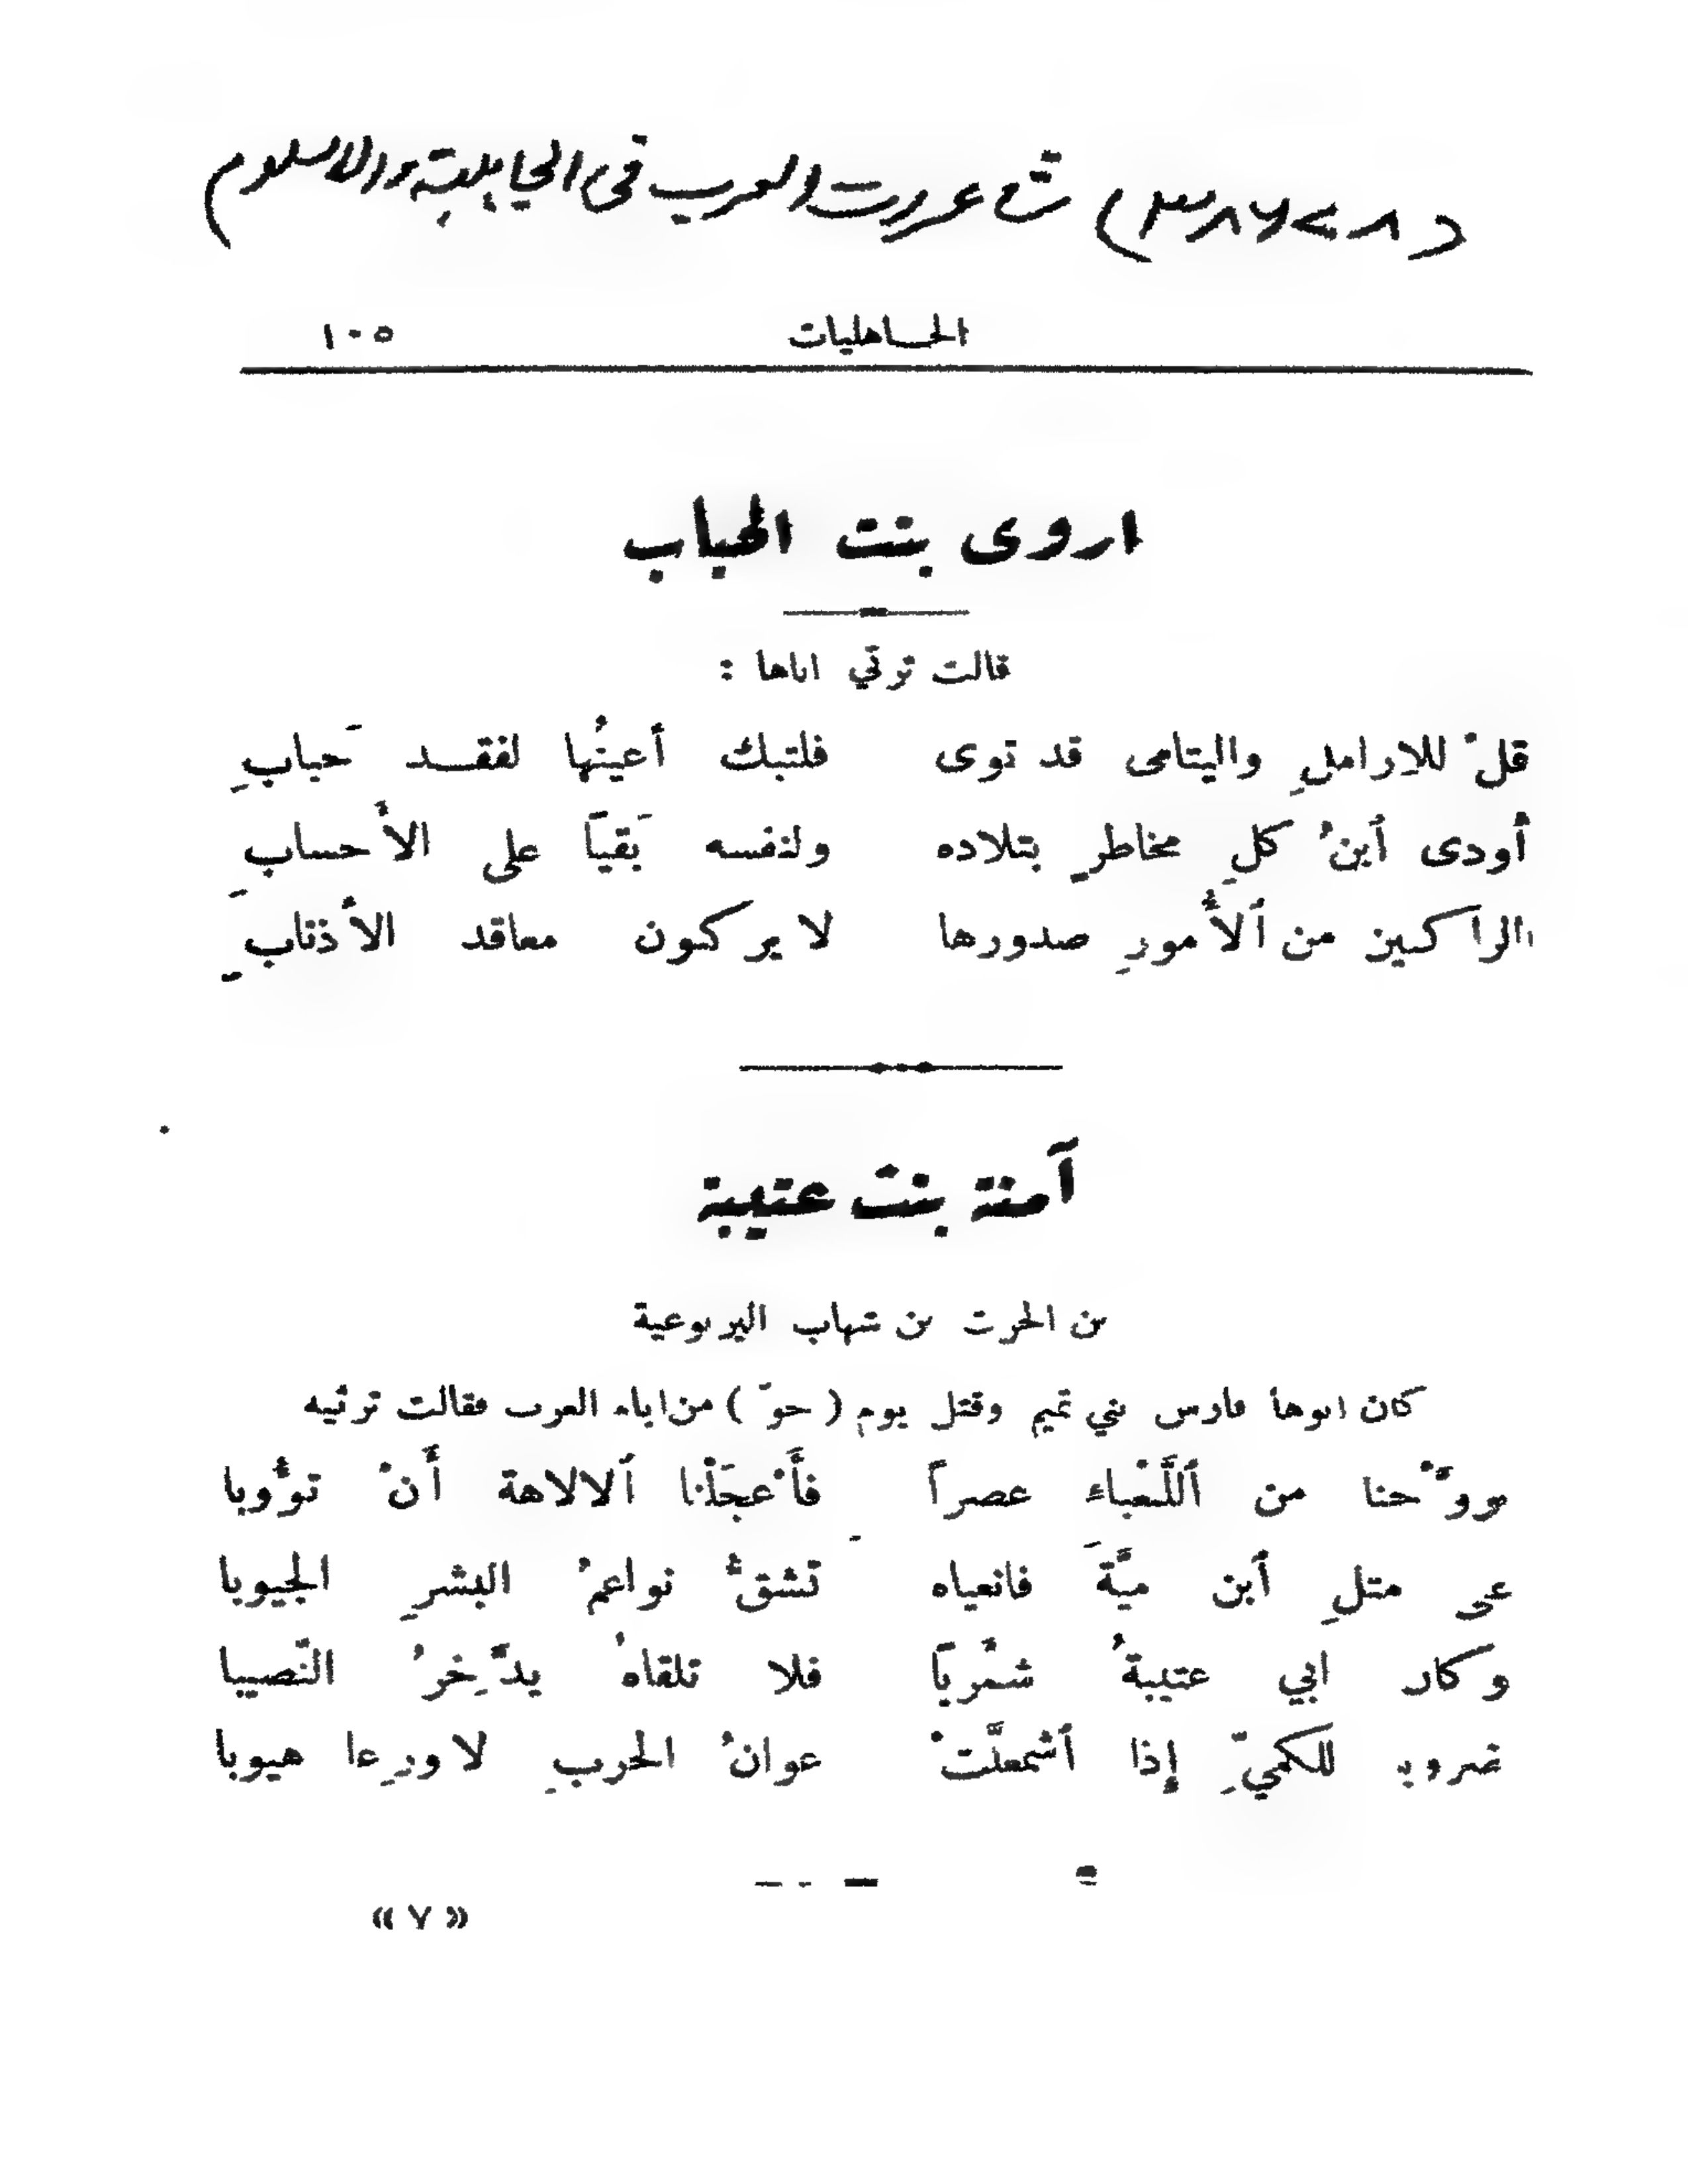 شع عروت العرب فى الجاهلية والاسلام)
الحاهليات ١٠٥
اروى بنت الحباب
قالت ترتي اباها :
قلْ للاراملِ واليتامى قد توى فلتبك أعينُها لفقد حَبابِ
أودى أبنُ كلِ مخاطرٍ بتلاده ولنفسه بَقياً على الأحسابِ
الراكبين من ٱلأُمورِ صدورها لا يركبون معاقد الأذنابِ
آمنة بنت عتيبة
بن الحرث بن شهاب اليربوعية
كان ابوها فارس بني تميم وقتل يوم ( حوّ ) من ايام العرب فقالت ترثيه
من ٱللَّعباء عصراً فأَعجلْنا ٱلالاهة أَنْ تؤُوبا
مثلِ أبن ميَّةَ فانعياه تشقُّ نواعمُ البشرِ الجيوبا
وكان ابي عتيبةُ شمْرياً فلا تلقاهُ يدَّخِرُ النّصيبا
للكميِّ إذا أشمعلَّتْ عوانُ الحربِ لا ورِعا هيوبا
«٧»